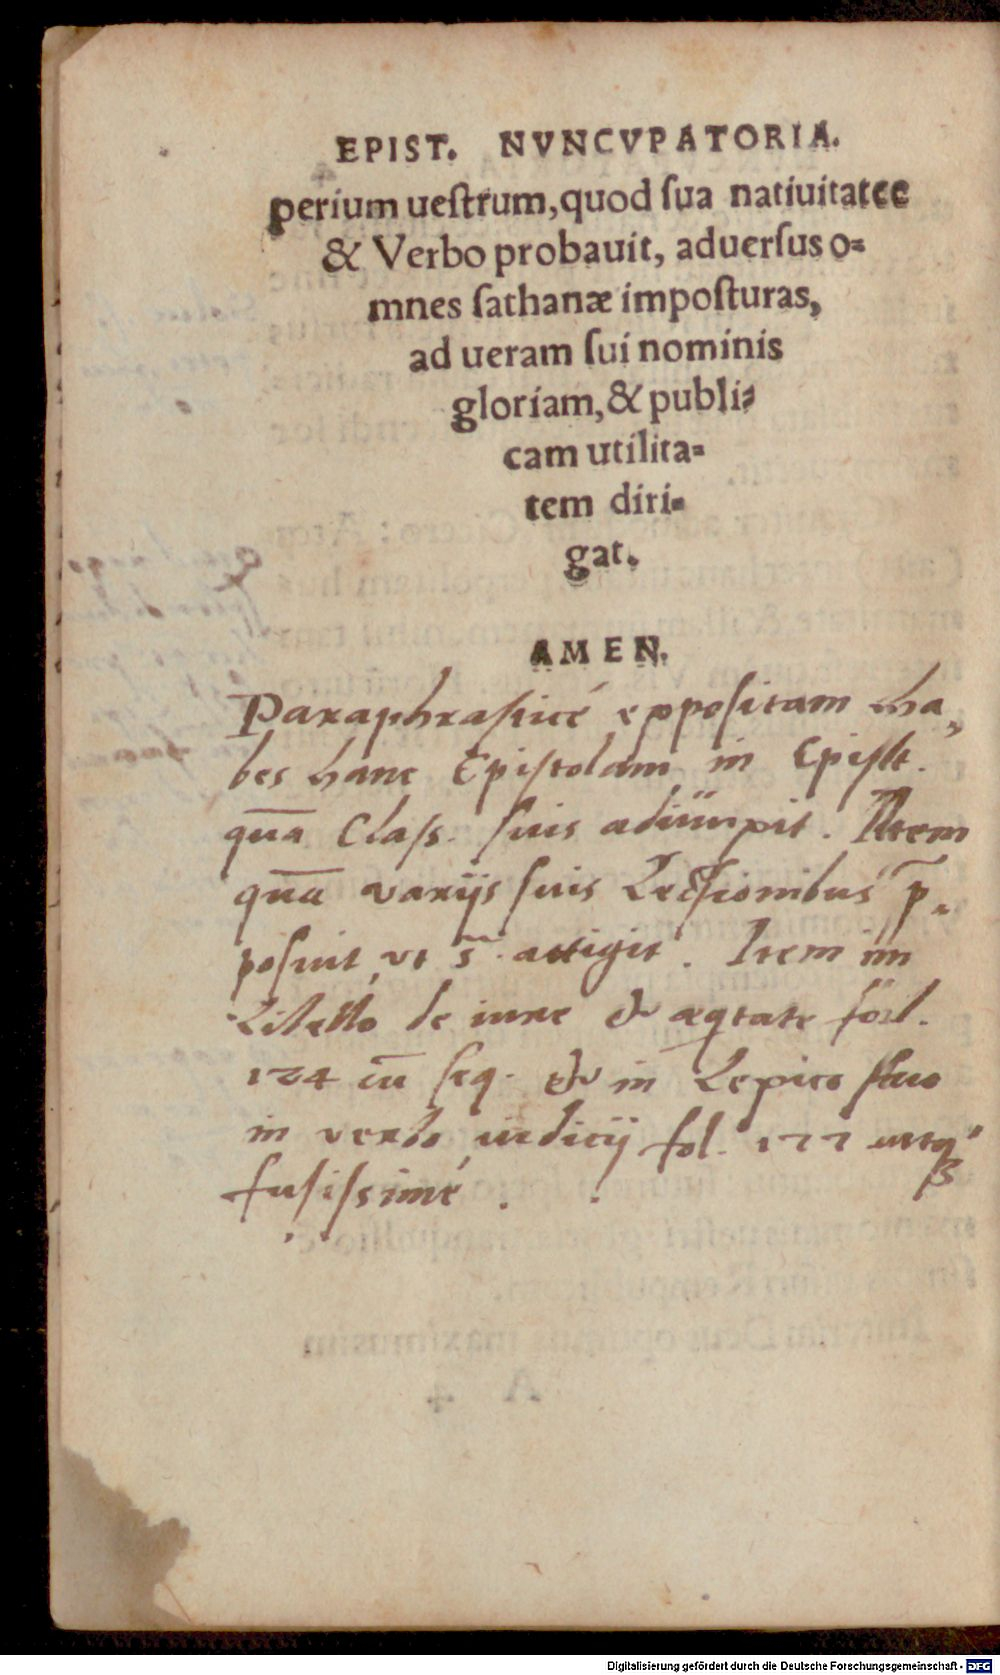 EPIST. NVNCVPATORIA.
perium ueſtrum, quod ſua natiuitatee
& Verbo probauit, aduerſus o=
mnes ſathanæ impoſturas,
ad ueram ſui nominis
gloriam, & publi=
cam utilita=
tem diri=
gat.
AMEN.
Paraphraſticé expoſitam ha,
bes hanc Epiſtolam in Epiſt.
quā Claſs. ſuis adiunxit. Item
quā varijs ſuis Lectionibus p̄,
poſuit, vt s̄. attigit. Item in
Libello de iure & æqtate fol.
124 cū ſeq. & in Lexico ſuo
in verbo iudicij fol. 177
fuſiſsimé.
Digitalisierung gefördert durch die Deutsche Forschungsgemeinschaft - DFG